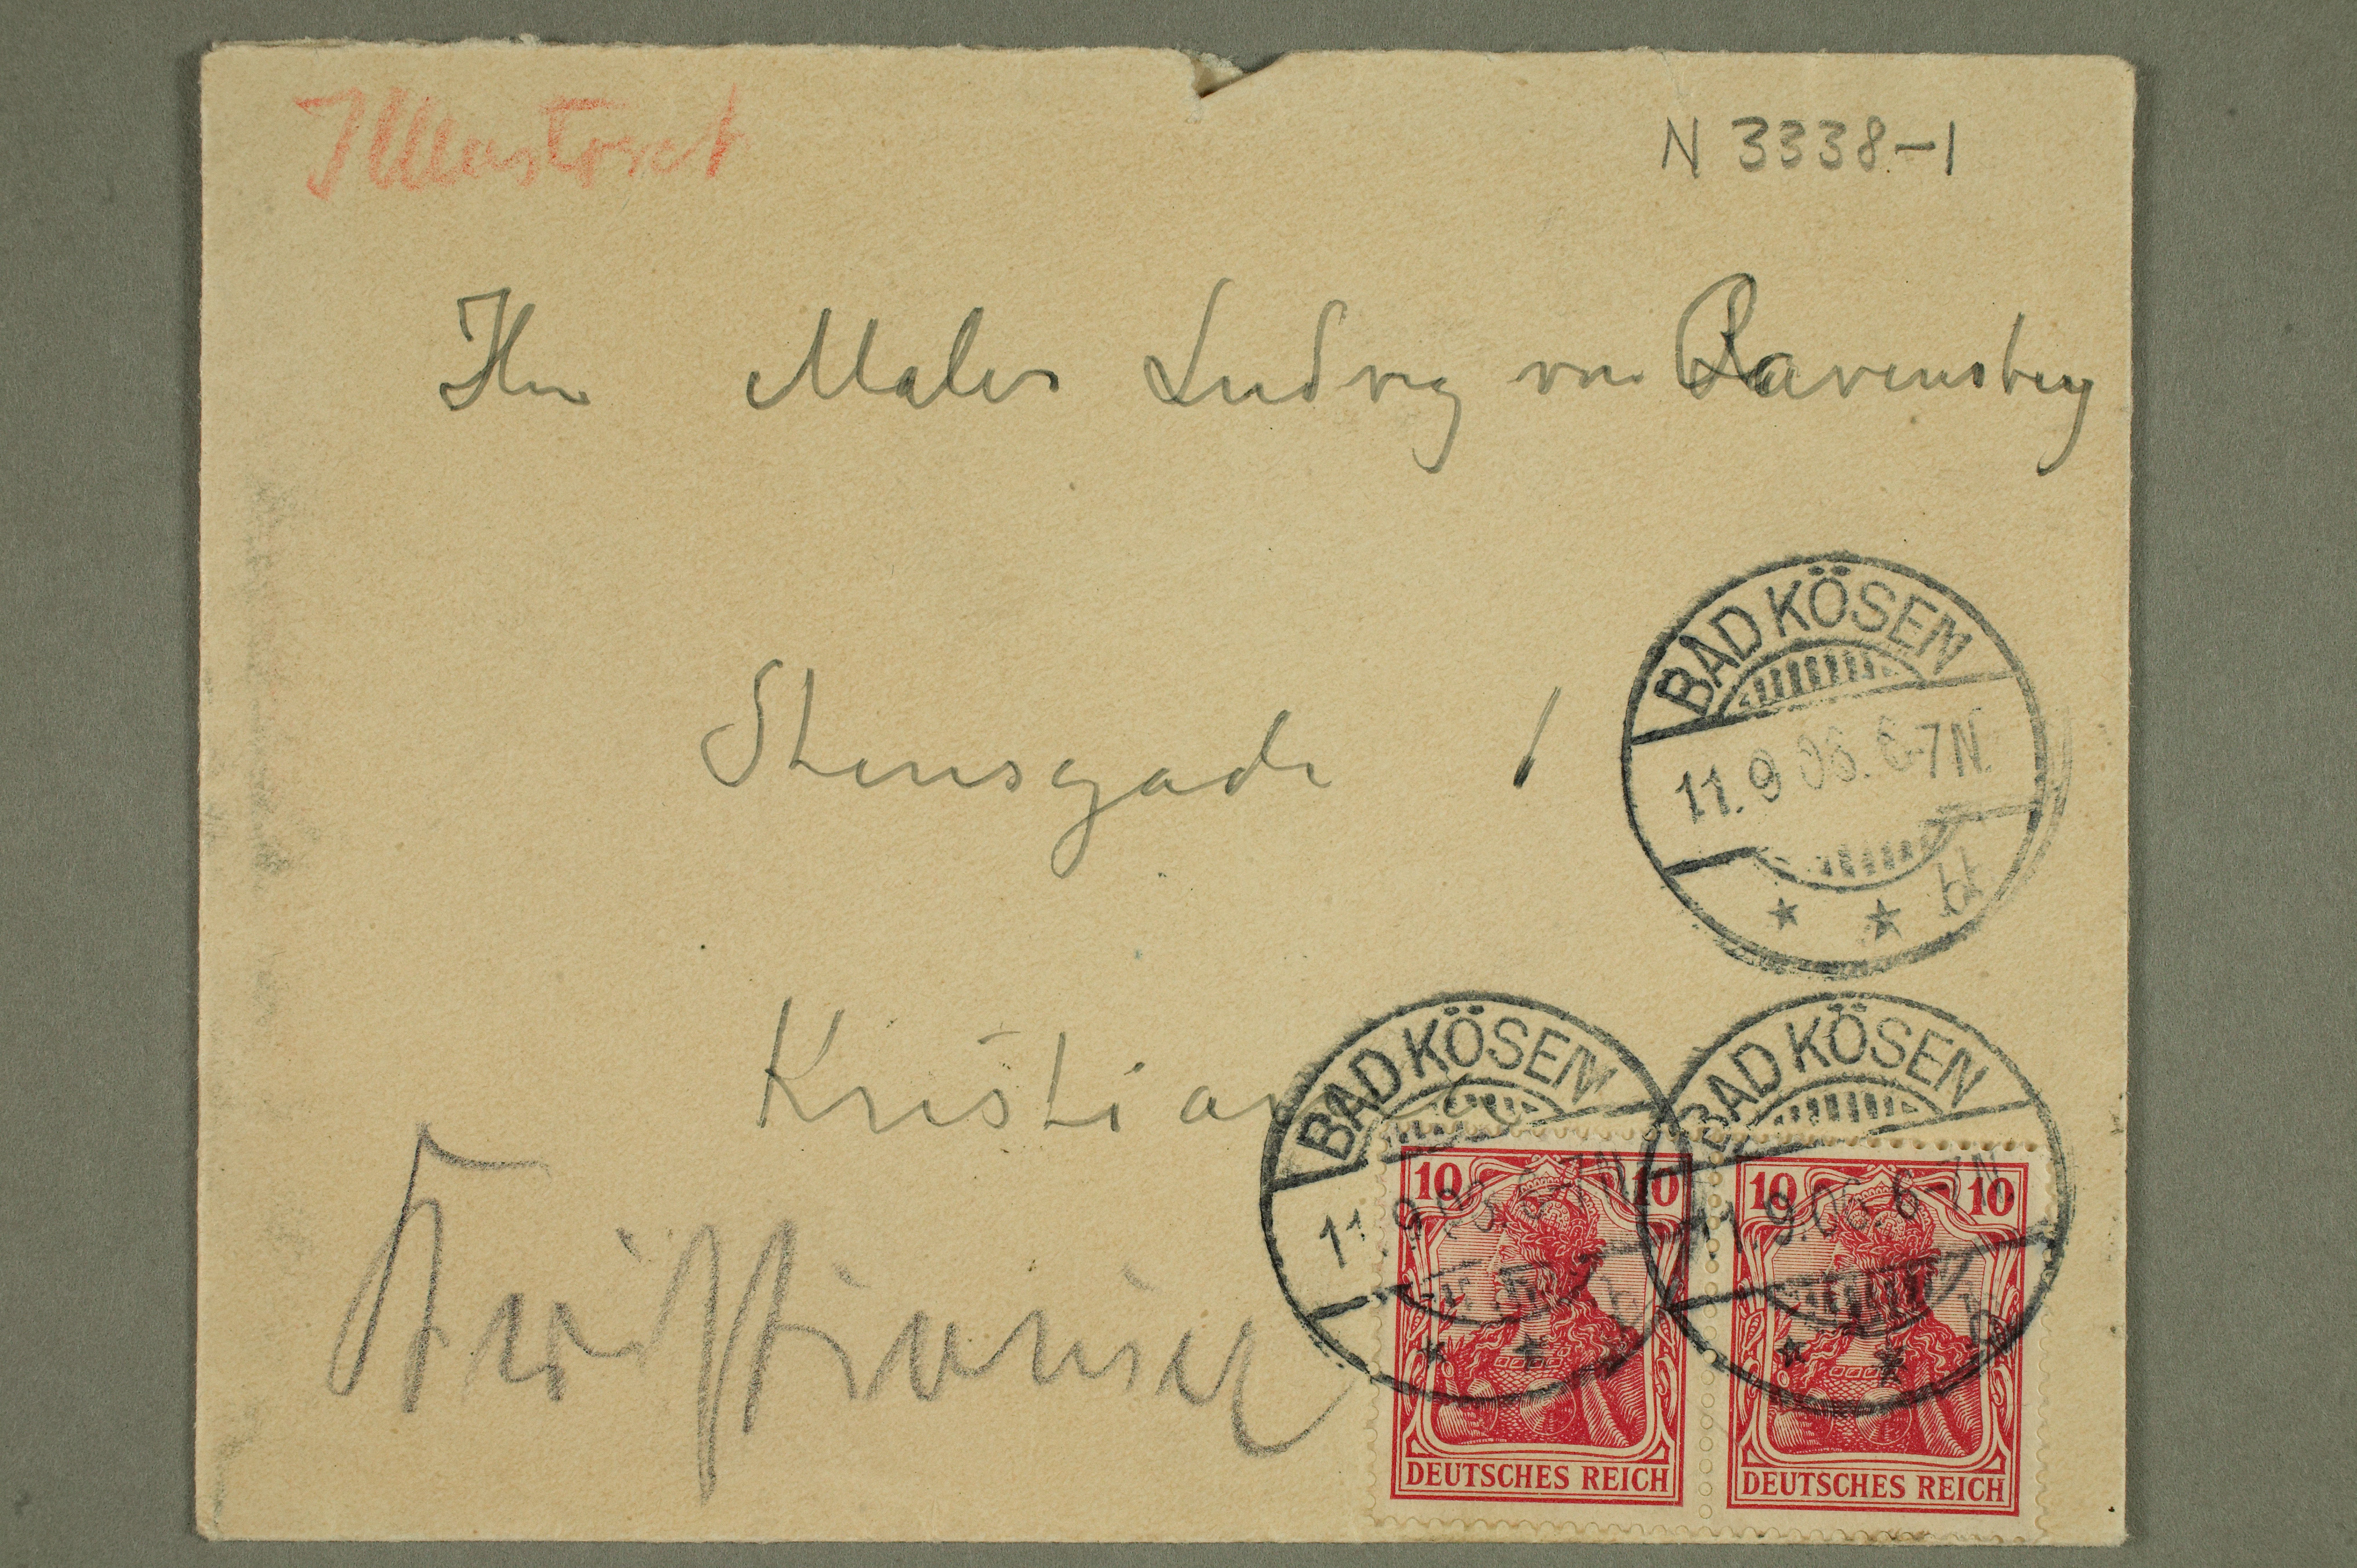 Illustreret
N 3338-1
Hr Maler Ludvig von Ravensberg
Stensgade 1
Kristiania
Kristiania
BAD KÖSEN
11.9.06. 6-7N.
* * b
BAD KÖSEN
11.9.06. 6-7N.
* * b
BAD KÖSEN
11.9.06. 6-7N.
* * b
10 10
DEUTSCHES REICH
10 10
DEUTSCHES REICH